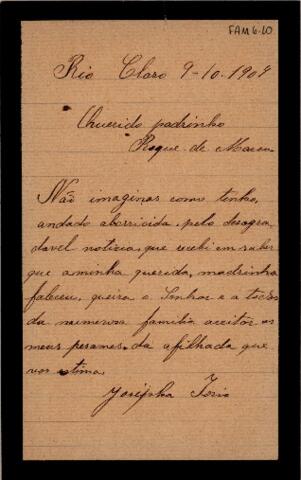 FAM 6.10
Rio Claro 9-10-1909
Querido padrinho
Roque de Marco
Não imaginas como tenho,
andado aborricida, pelo desagra,
davel noticia, que recebi em saber
que a minha querida, madrinha
faleceu, queira o Senhor e a todos
da numerosa familia aceitar os
meus pesames, da afilhada que
vos estima.
Josepha